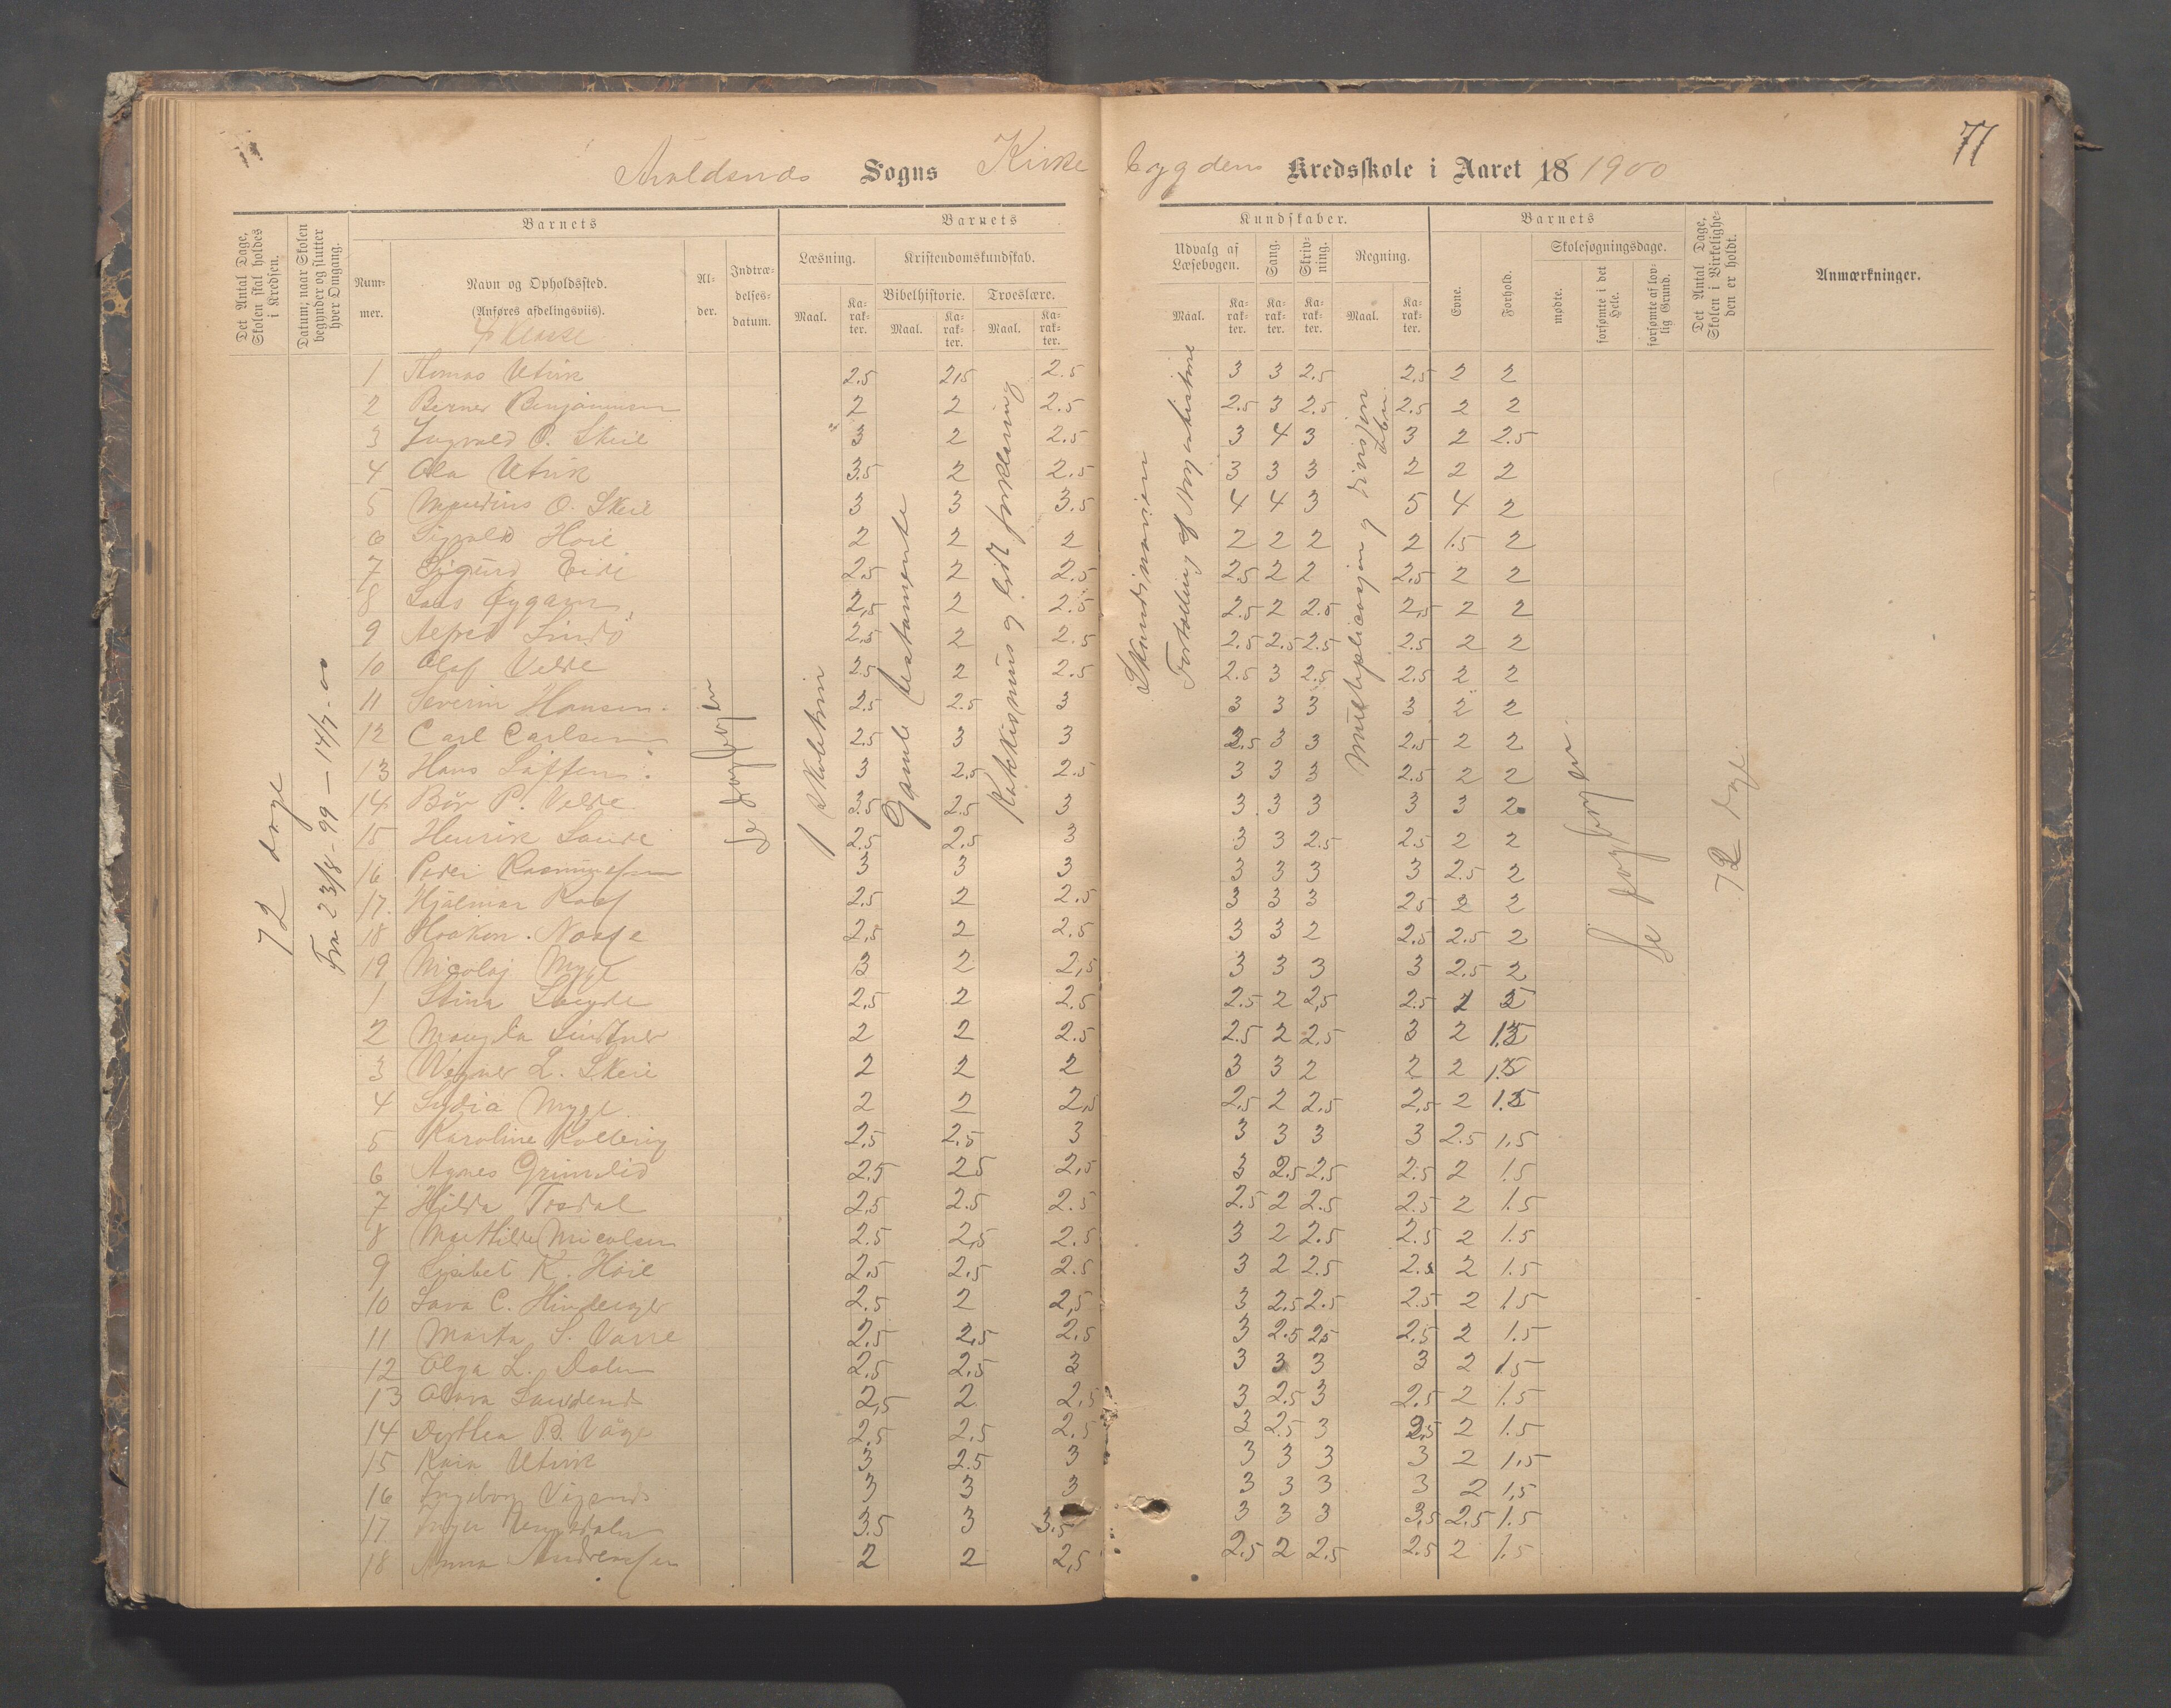 77
Sogns Kirke bygdens Kredsskole i Aaret 18 1900
Det Antal Dage, Skolen skal holdes i Kredsen.
Datum, naar Skolen begynder og slutter hver Omgang.
Barnets
Nummer.
Navn og Opholdssted.
(Anføres afdelingsviis).
Alder.
Indtrædelsesdatum.
Barnets
Læsning.
Maal.
Karakter.
Kristendomskundskab.
Bibelhistorie.
Maal.
Karakter.
Troeslære.
Maal.
Karakter.
Kundskaber.
Udvalg af Læsebogen.
Maal.
Karakter.
Sang.
Karakter.
Skrivning.
Karakter.
Regning.
Maal.
Karakter.
Barnets
Evne.
Forhold.
Skolesøgningsdage.
mødte.
forsømte i det Hele.
forsømte af lovlig Grund.
Det Antal Dage, Skolen i Virkeligheden er holdt.
Anmærkninger.
4 klasse
72 dage
Fra 23/8-99 — 14/7-00
Se dagbogen
1 skoletrin
Gamle testamente
Katekismus og lidt forklaring
Skandinavien
Multiplicasjon og divisjon
Se dagbogen
72 dage
1 Thomas Utvik 2.5 2,5 2.5 3 3 2.5 2,5 2 2
2 Berner Benjaminsen 2 2 2.5 2.5 3 2.5 2.5 2 2
3 Ingvald O. Skeie 3 2 2.5 3 4 3 3 2 2.5
4 Ola Utvik 3.5 2 2.5 3 3 3 2 2 2
5 Maurdius O. Skeie 3 3 3.5 4 4 3 5 4 2
6 Sigvald Hoie 2 2 2 2 2 2 2 1.5 2
7 Sigurd Eide 2.5 2 2.5 2.5 2 2 2,5 2 2
8 Lars 2,5 2 2.5 2.5 2 2.5 2,5 2 2
9 Alfred Lindö 2.5 2 2.5 2.5 2.5 2.5 2.5 2 2
10 Olaf Velde 2.5 2 2.5 2.5 3 2.5 2.5 2 2
11 Severin Hansen 2.5 2.5 3 3 3 3 3 2 2
12 Carl Carlsen 2.5 3 3 2.5 3 3 2.5 2 2
13 Hans 3 2.5 2.5 3 3 3 2.5 2 2
14 Bör P. Velde 3.5 2.5 3 3 3 3 3 3 2
15 Henrik Sande 2.5 2,5 3 3 3 2.5 2.5 2 2
16 Peder Rasmussen 3 3 3 3 3 3 3 2.5 2
17. Hjalmar 2.5 2 2.5 3 3 3 2.5 2 2
18 Haakon 2,5 2 2.5 3 3 2 2.5 2.5 2
19 Nicolaj Myge 3 2 2,5 3 3 3 3 2.5 2
1 Stina 2,5 2 2.5 2.5 2 2,5 2.5 2 2
2 Magda Lindtner 2 2 2.5 2.5 2 2,5 3 2 1.5
3 L. Skeie 2 2 2 3 3 2 2 2 1.5
4 Lydia Myge 2 2 2,5 2,5 2 2,5 2,5 2 1.5
5 Karoline 2,5 2,5 3 3 3 3 3 2.5 1.5
6 Agnes Grindlid 2.5 25 2,5 3 2.5 2.5 2.5 2 1.5
7 Hilda 2,5 2.5 2.5 2.5 2 2.5 2.5 2 1.5
8 Mathilde 2.5 2,5 2.5 3 2 2.5 2.5 2 1.5
9 Lisabet K. Hoie 2,5 2,5 2.5 3 2 2.5 2.5 2 1.5
10 C. 2.5 2 2,5 3 2.5 2.5 2.5 2 1.5
11 Marta S. 2,5 2,5 2,5 3 2.5 25 2.5 2 1.5
12 Olga L. Dalen 2,5 2,5 3 3 3 3 3 2 1.5
13 2,5 2 2,5 3 2.5 3 2.5 2 1.5
14 B. Våge 2,5 2.5 2.5 3 2.5 3 2.5 2 1.5
15 Kaia Utvik 3 2.5 3 3 3 3 3 2 1,5
16 Ingeborg 3 3 3 3 3 3 3 2 1,5
17. Inger 3.5 3 3.5 3 3 3 3,5 2.5 1.5
18 Anna Andreassen 2 2 2,5 2.5 2 2.5 2.5 2 1.5